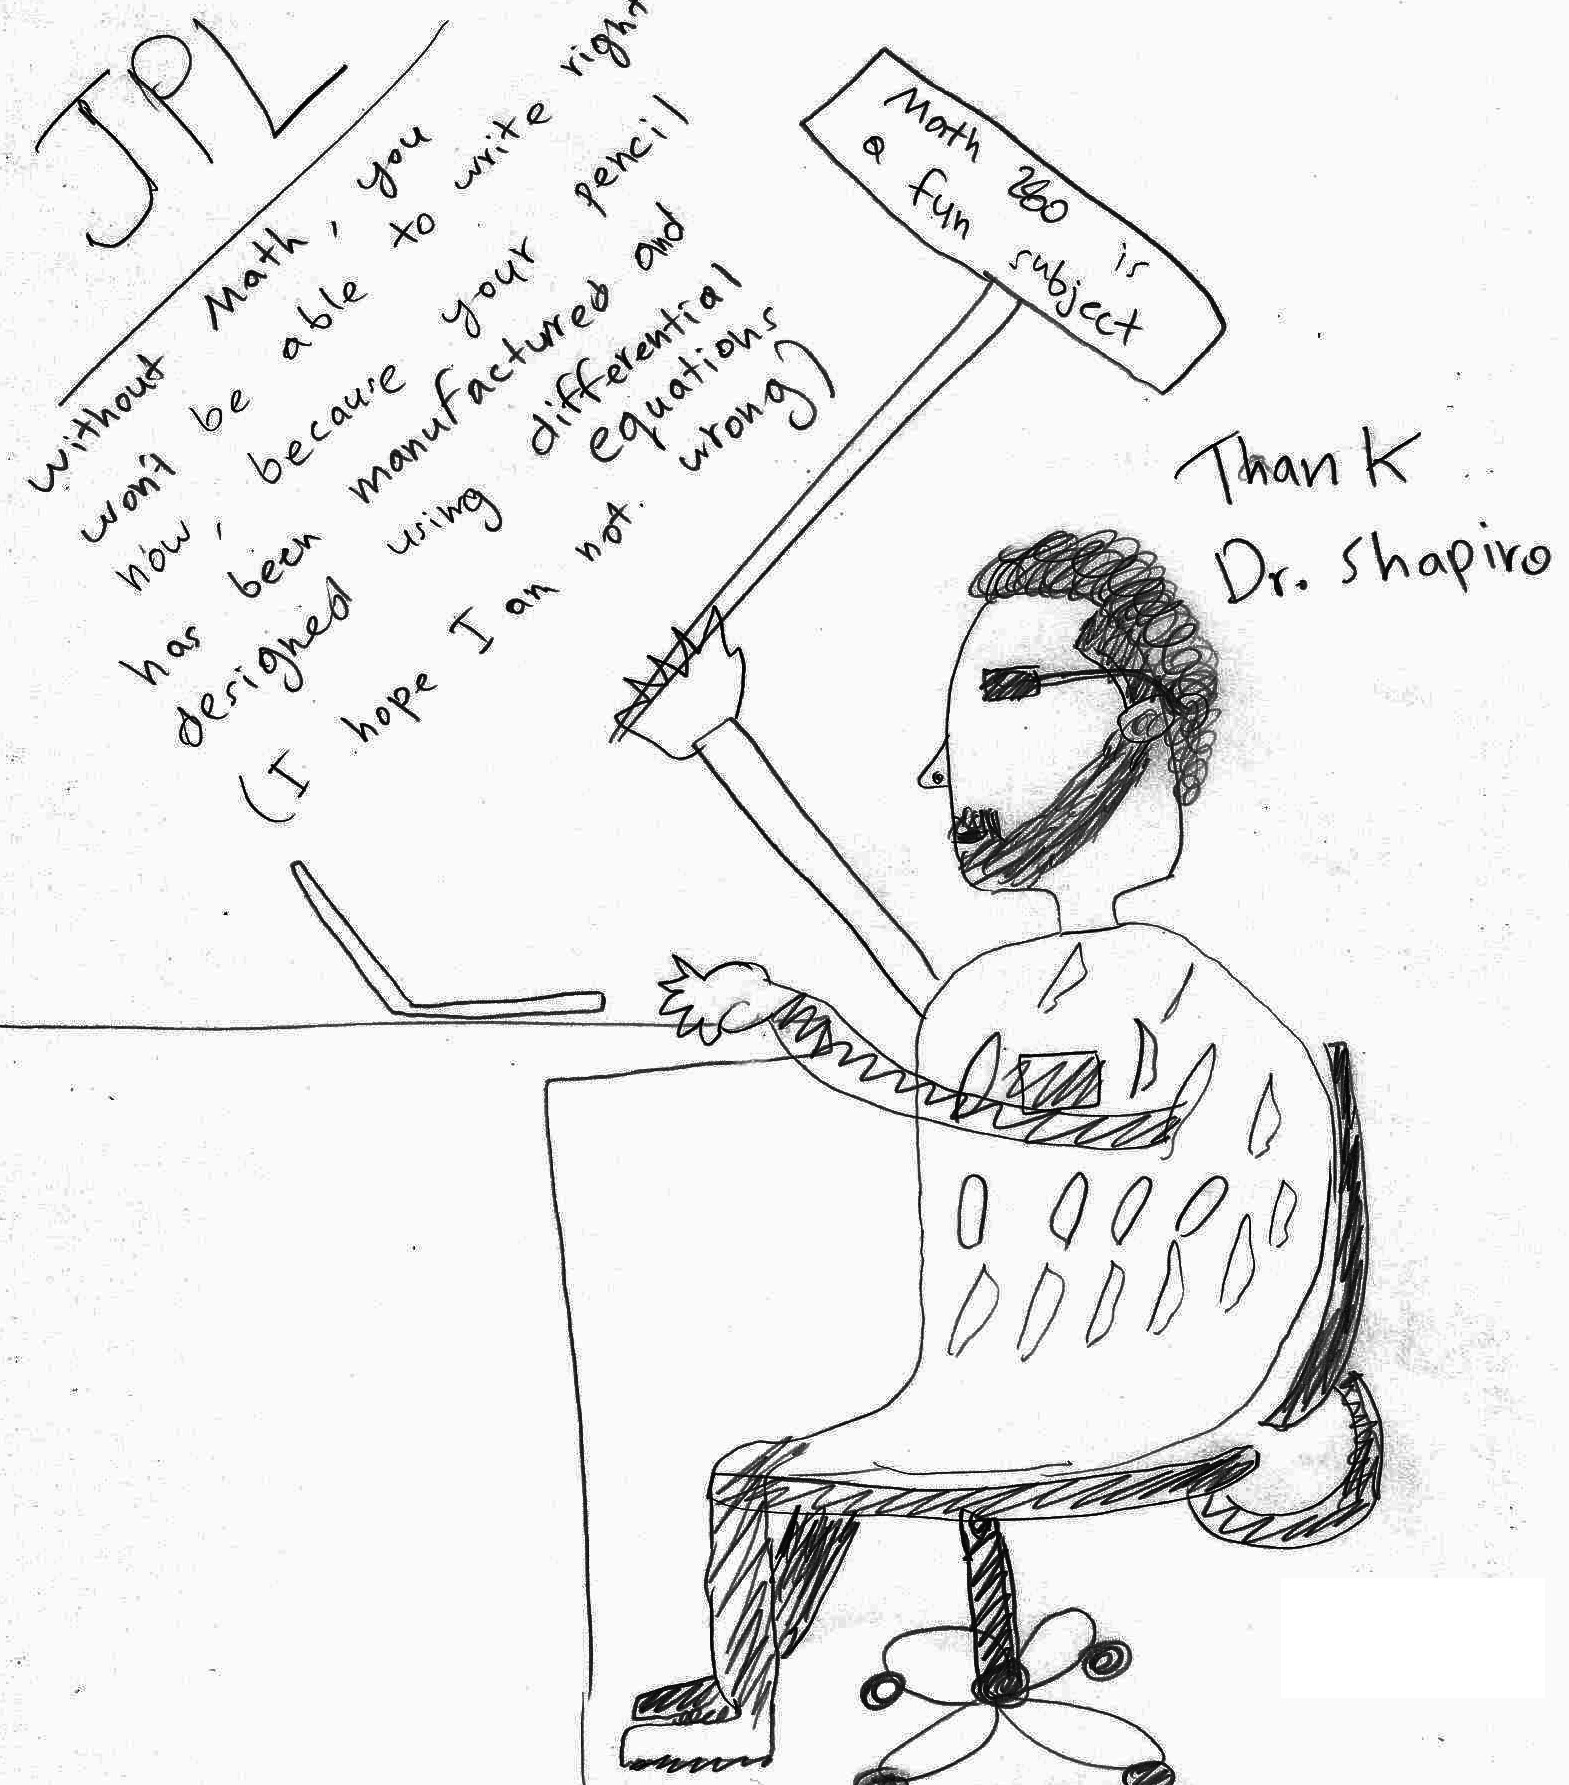 JPL
without Math, you
won't be able to write right
now, because your pencil
has been manufactured and
designed using differential
equations
(I hope I am not wrong)
Math 280 is
a fun subject
Thank
Dr. Shapiro